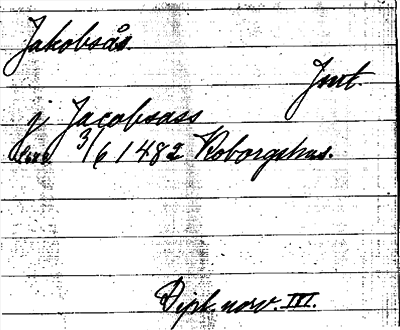 Jakobsås.
Jmt.
j Jacobsass
3/6 1482 Koborgshus.
Dipl. norv. III.